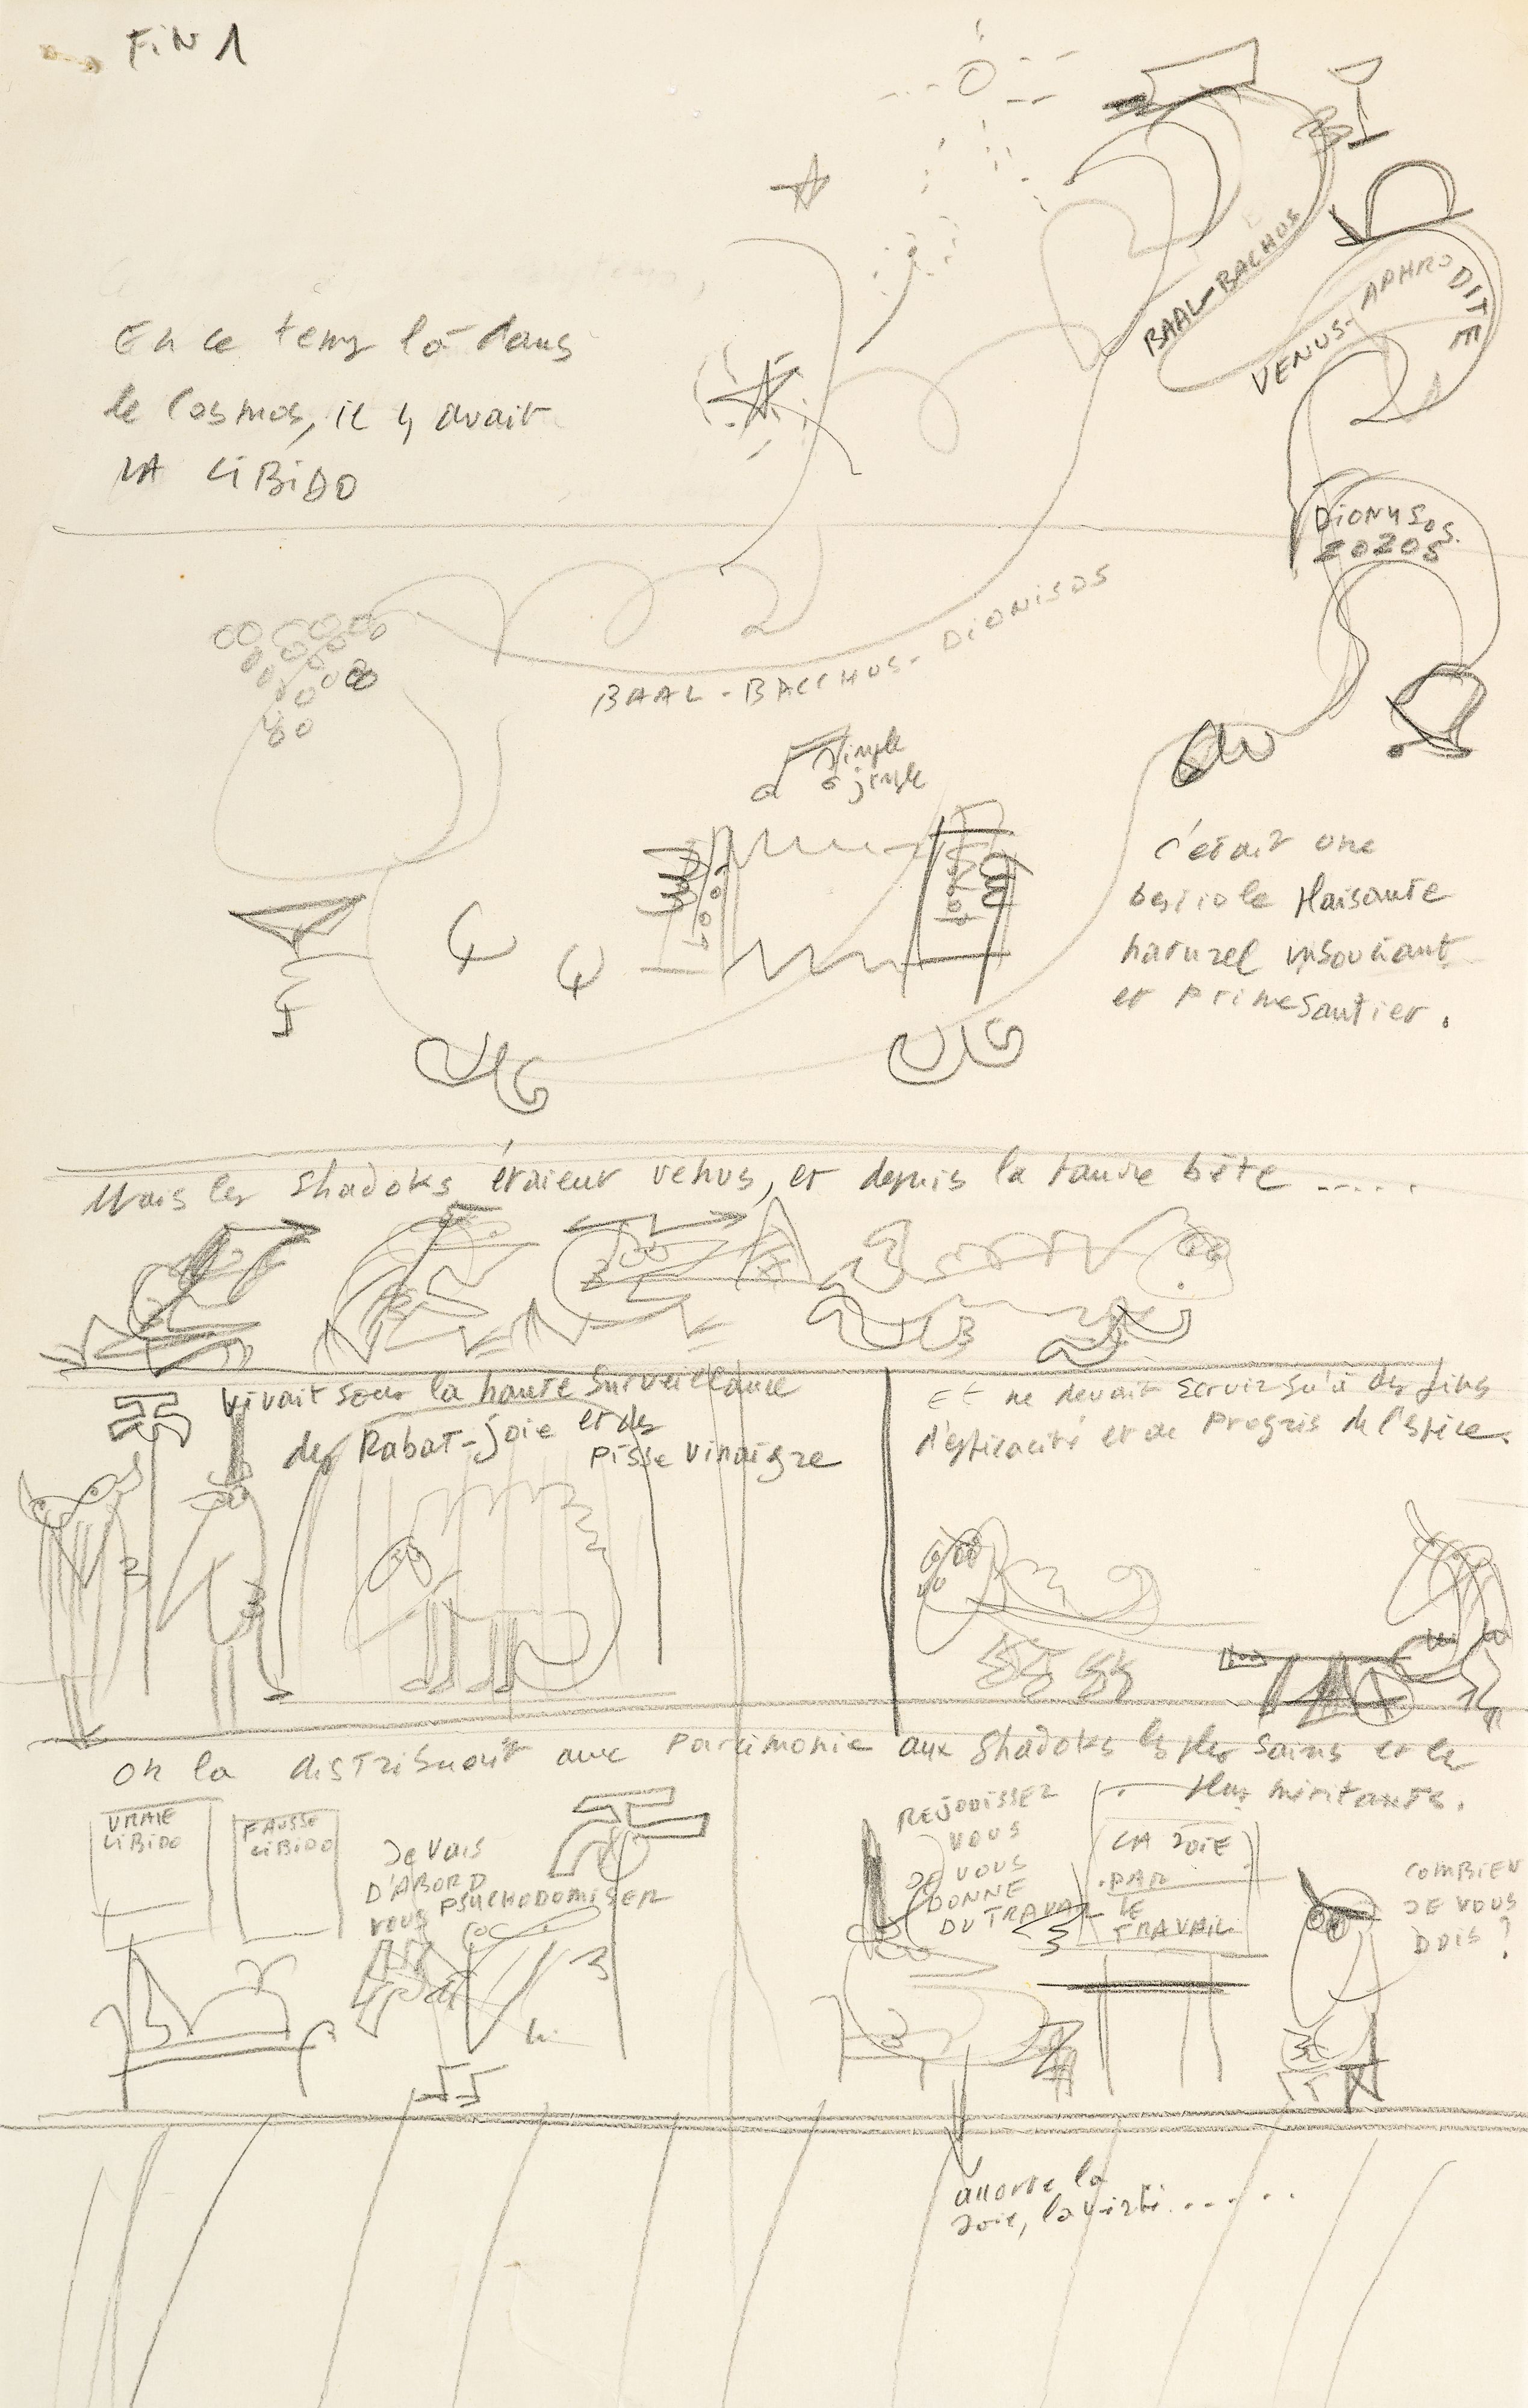 FiN 1
En ce temps là dans
le Cosmos, il y avait
LA LiBiDO
BAAL-BACHOS
VENUS-APHRODITE
DiONYSOS.
ZOZOS
BAAL-BACCHUS-DiONiSOS
jingle
C'était une
bestiole plaisante
naturel insouciant
et primesautier.
Mais les Shadoks étaient venus, et depuis la pauvre bête .....
vivait sous la haute Surveillance
des Rabat-joie et des
pisse vinaigre
Et ne devait servir qu'à des fins
d'efficacité et de progrès de l'espèce.
On la distribuait avec parcimonie aux Shadoks les plus sains et les
plus méritants.
VRAIE
LiBiDO
FAUSSE
LiBiDO
Je VAiS
D'ABORD
VOUS PSYCHODOMISER
REJOUISSEZ
VOUS
JE VOUS
DONNE
DU TRAVAIL
LA JOIE
PAR
LE
TRAVAIL
COMBIEN
JE VOUS
DOIS ?
la
Joie, la